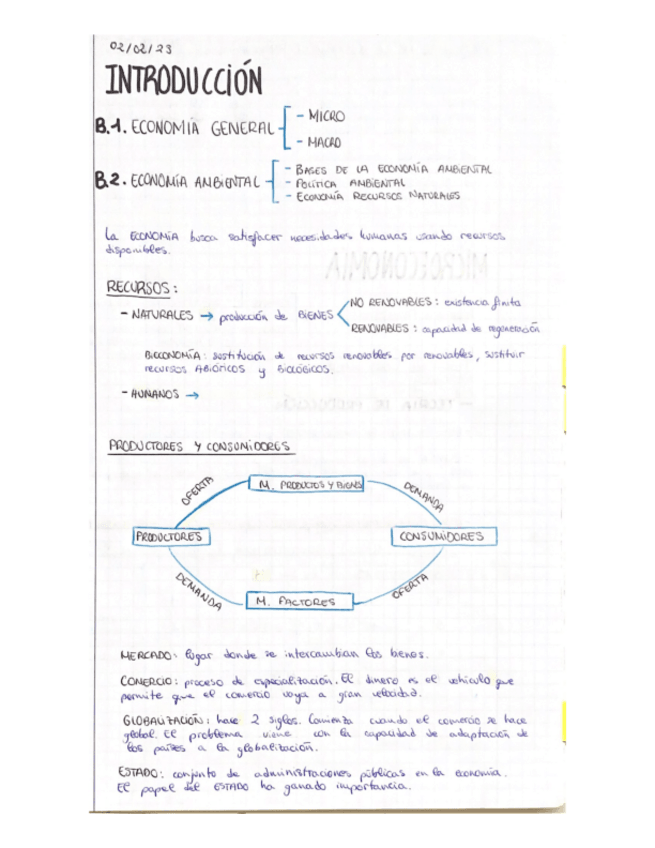 02/02/23
INTRODUCCIÓN
B.1. ECONOMÍA GENERAL
- MICRO
- MACRO
B.2. ECONOMÍA AMBIENTAL
- BASES DE LA ECONOMÍA AMBIENTAL
- POLÍTICA AMBIENTAL
- ECONOMÍA RECURSOS NATURALES
La ECONOMÍA busca satisfacer necesidades humanas usando recursos
disponibles.
RECURSOS:
- NATURALES → producción de BIENES
NO RENOVABLES: existencia finita
RENOVABLES: capacidad de regeneración
BIOECONOMÍA: sustitución de recursos renovables por renovables, sustituir
recursos ABIÓTICOS y BIOLÓGICOS.
- HUMANOS →
PRODUCTORES Y CONSUMIDORES
OFERTA
M. PRODUCTOS Y BIENES
DEMANDA
PRODUCTORES
CONSUMIDORES
DEMANDA
M. FACTORES
OFERTA
MERCADO: lugar donde se intercambian los bienes.
COMERCIO: proceso de especialización. El dinero es el vehículo que
permite que el comercio vaya a gran velocidad.
GLOBALIZACIÓN: hace 2 siglos. Comienza cuando el comercio se hace
global. El problema viene con la capacidad de adaptación de
los países a la globalización.
ESTADO: conjunto de administraciones públicas en la economía.
El papel del ESTADO ha ganado importancia.
MICROECONOMÍA
- TEORÍA DE PRODUCCIÓN